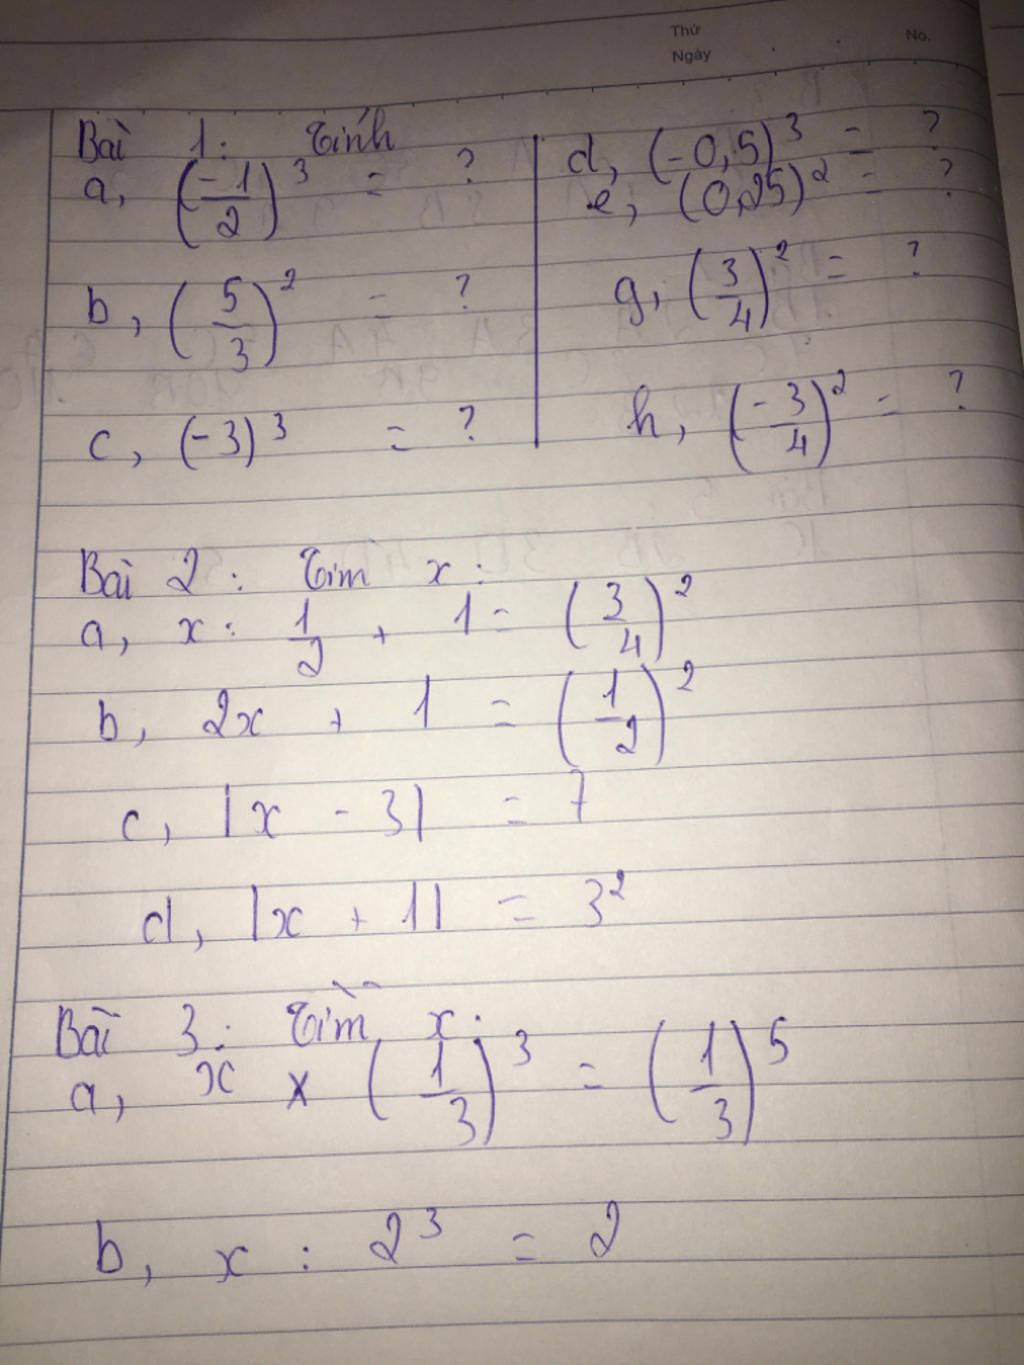 Thứ
Ngày
No.
Bài 1: Tính
a, (-1/2)³ = ?
b, (5/3)² = ?
c, (-3)³ = ?
d, (-0,5)³ = ?
e, (0,25)² = ?
g, (3/4)² = ?
h, (-3/4)² = ?
Bài 2: Tìm x:
a, x : 1/2 + 1 = (3/4)²
b, 2x + 1 = (1/2)²
c, |x - 3| = 7
d, |x + 1| = 3²
Bài 3: Tìm x:
a, x × (1/3)³ = (1/3)⁵
b, x : 2³ = 2